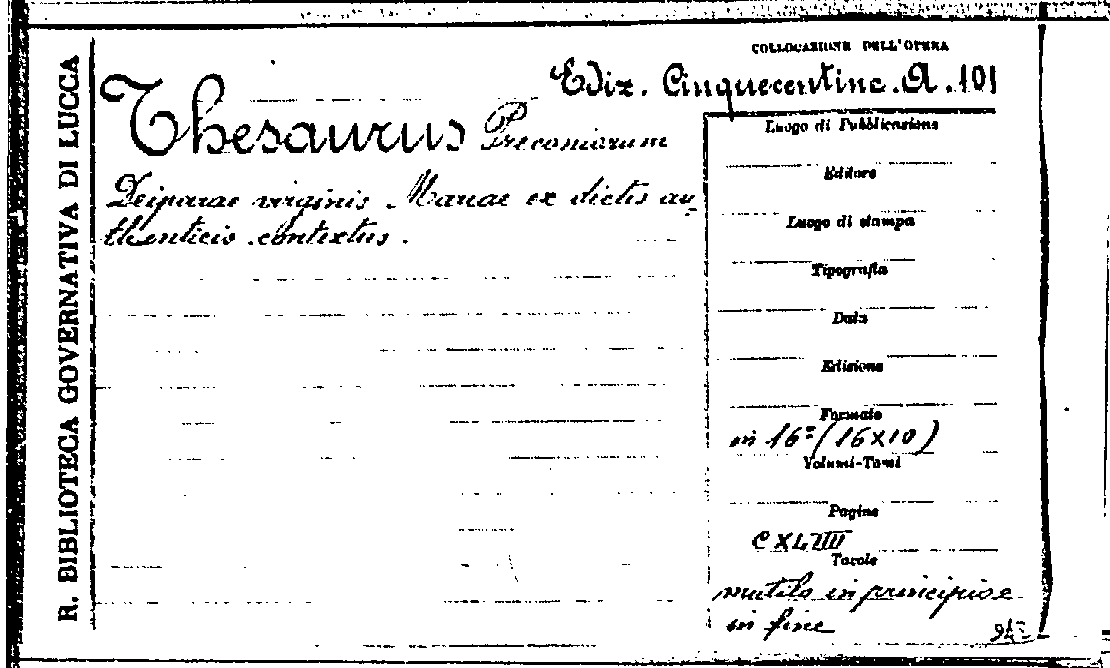 R. BIBLIOTECA GOVERNATIVA DI LUCCA
COLLOCAZIONE DELL'OPERA
Ediz. Cinquecentine. A. 101
Thesaurus Preconiorum
Deiparae virginis Mariae ex dictis au-
thenticis contextus.
Luogo di Pubblicazione
Editore
Luogo di stampa
Tipografia
Data
Edizione
Formato
in 16º (16x10)
Volumi-Tomi
Pagine
CXLIIII
Tavole
mutilo in principio e
in fine